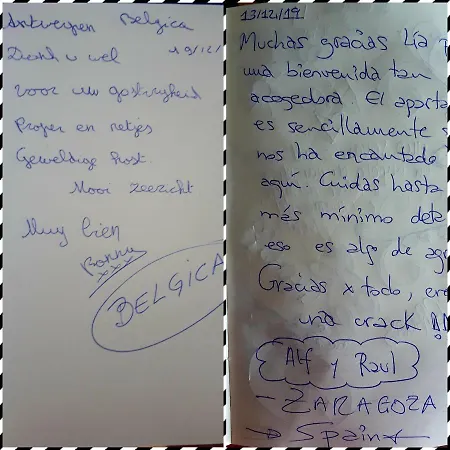 Antwerpen Belgica
19/12/
Dankt u wel
voor uw gastvrijheid
Proper en netjes
Geweldige host
Mooi zeezicht
Muy bien
Ronny
xxx
BELGICA
13/12/19
Muchas gracias Lía
una bienvenida tan
acogedora. El aparta
es sencillamente s
nos ha encantado
aquí. Cuidas hasta
más mínimo deta
eso es algo de agr
Gracias x todo, ere
una crack !!
Alf y Raul
- ZARAGOZA
→ Spain ←